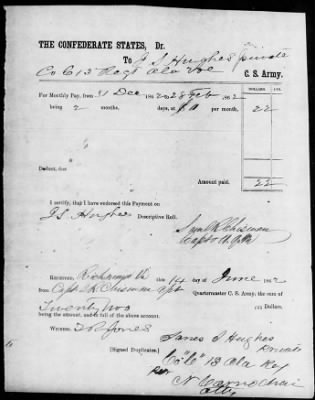 THE CONFEDERATE STATES, Dr.
To J S Hughes private
Co C 13 Regt Ala Vol C. S. Army.
DOLLARS CTS.
For Monthly Pay, from 31 Dec 1861 to 28 Feb 1862
being 2 months, days, at $11 per month, 22
Deduct, due
Amount paid. 22
I certify, that I have endorsed this Payment on
J S Hughes Descriptive Roll.
Capt
RECEIVED, Richmond Va this 14 day of June 1862
from Capt Quartermaster C. S. Army, the sum of
Twenty two Dollars,
being the amount, and in full of the above account.
WITNESS, Jones
James S Hughes
(Signed Duplicates.) Private
Co "C" 13 Ala Reg
per N
Atty